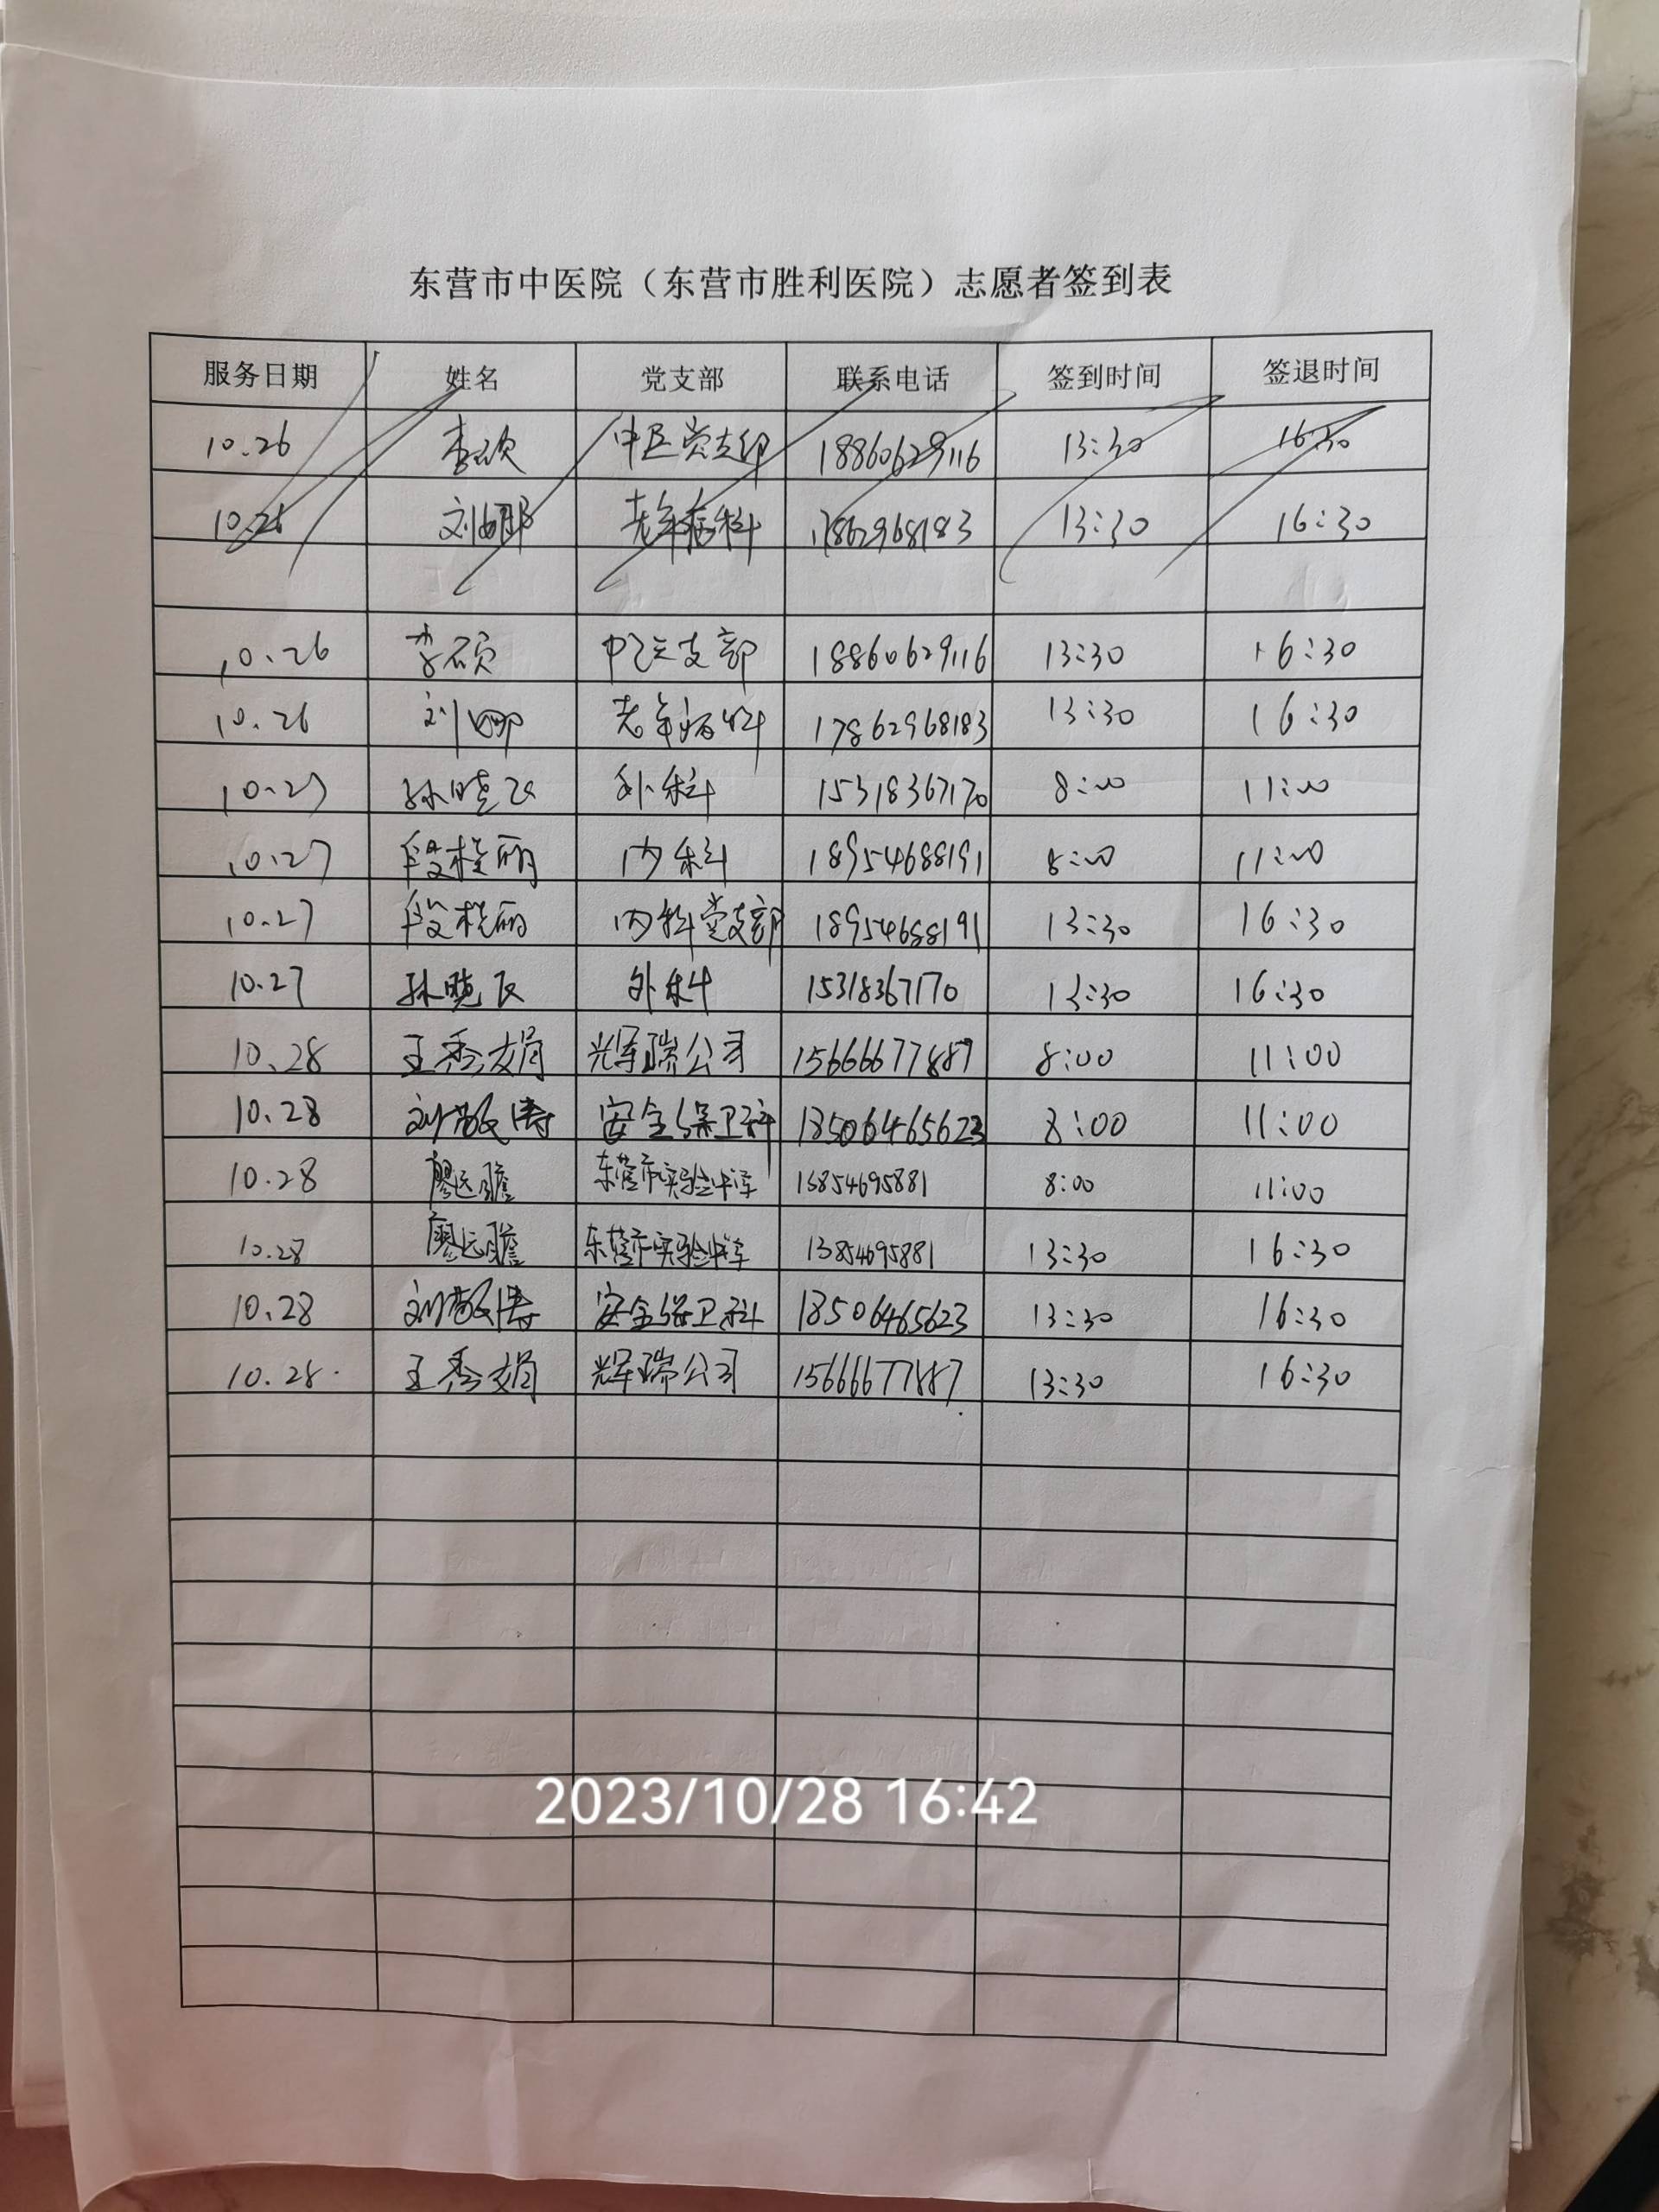 东营市中医院（东营市胜利医院）志愿者签到表
服务日期 姓名 党支部 联系电话 签到时间 签退时间
10.26 李硕 中医党支部 18860629116 13:30 16:30
10.26 刘娜 老年病科 17862968183 13:30 16:30
10.26 李硕 中医支部 18860629116 13:30 16:30
10.26 刘娜 老年病科 17862968183 13:30 16:30
10.27 孙晓 外科 15318367170 8:00 11:00
10.27 段桂丽 内科 18954688191 8:00 11:00
10.27 段桂丽 内科党支部 18954688191 13:30 16:30
10.27 孙晓 外科 15318367170 13:30 16:30
10.28 王秀娟 辉瑞公司 15666677887 8:00 11:00
10.28 刘敬涛 安全保卫科 18506465623 8:00 11:00
10.28 廖远瞻 东营市实验中学 13854695881 8:00 11:00
10.28 廖远瞻 东营市实验中学 13854695881 13:30 16:30
10.28 刘敬涛 安全保卫科 18506465623 13:30 16:30
10.28 王秀娟 辉瑞公司 15666677887 13:30 16:30
2023/10/28 16:42